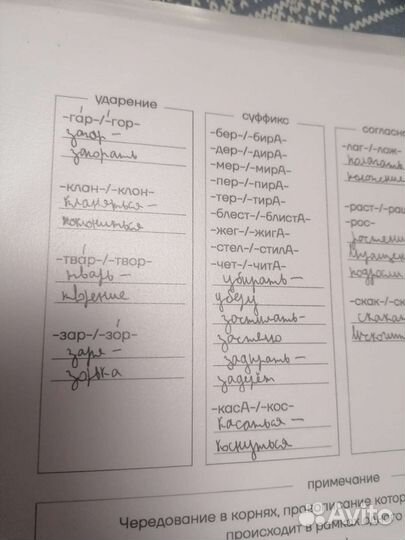 ударение
-га́р-/-гор-
загар –
загорать
-клан-/-клон-
кланяться –
поклониться
-тва́р-/-твор-
тварь –
творение
-зар-/-зо́р-
заря –
зорька
суффикс
-бер-/-бирА-
-дер-/-дирА-
-мер-/-мирА-
-пер-/-пирА-
-тер-/-тирА-
-блест-/-блистА-
-жег-/-жигА-
-стел-/-стилА-
-чет-/-читА-
убирать –
уберу
застилать-
застелю
задирать –
задерёт
-касА-/-кос-
касаться –
коснуться
согласн
-лаг-/-лож-
полагать
положение
-раст-/-ращ
-рос-
-скак-/-ск
скакат
вскочит
примечание
Чередование в корнях, правописание котор
происходит в рамках одного
Avito